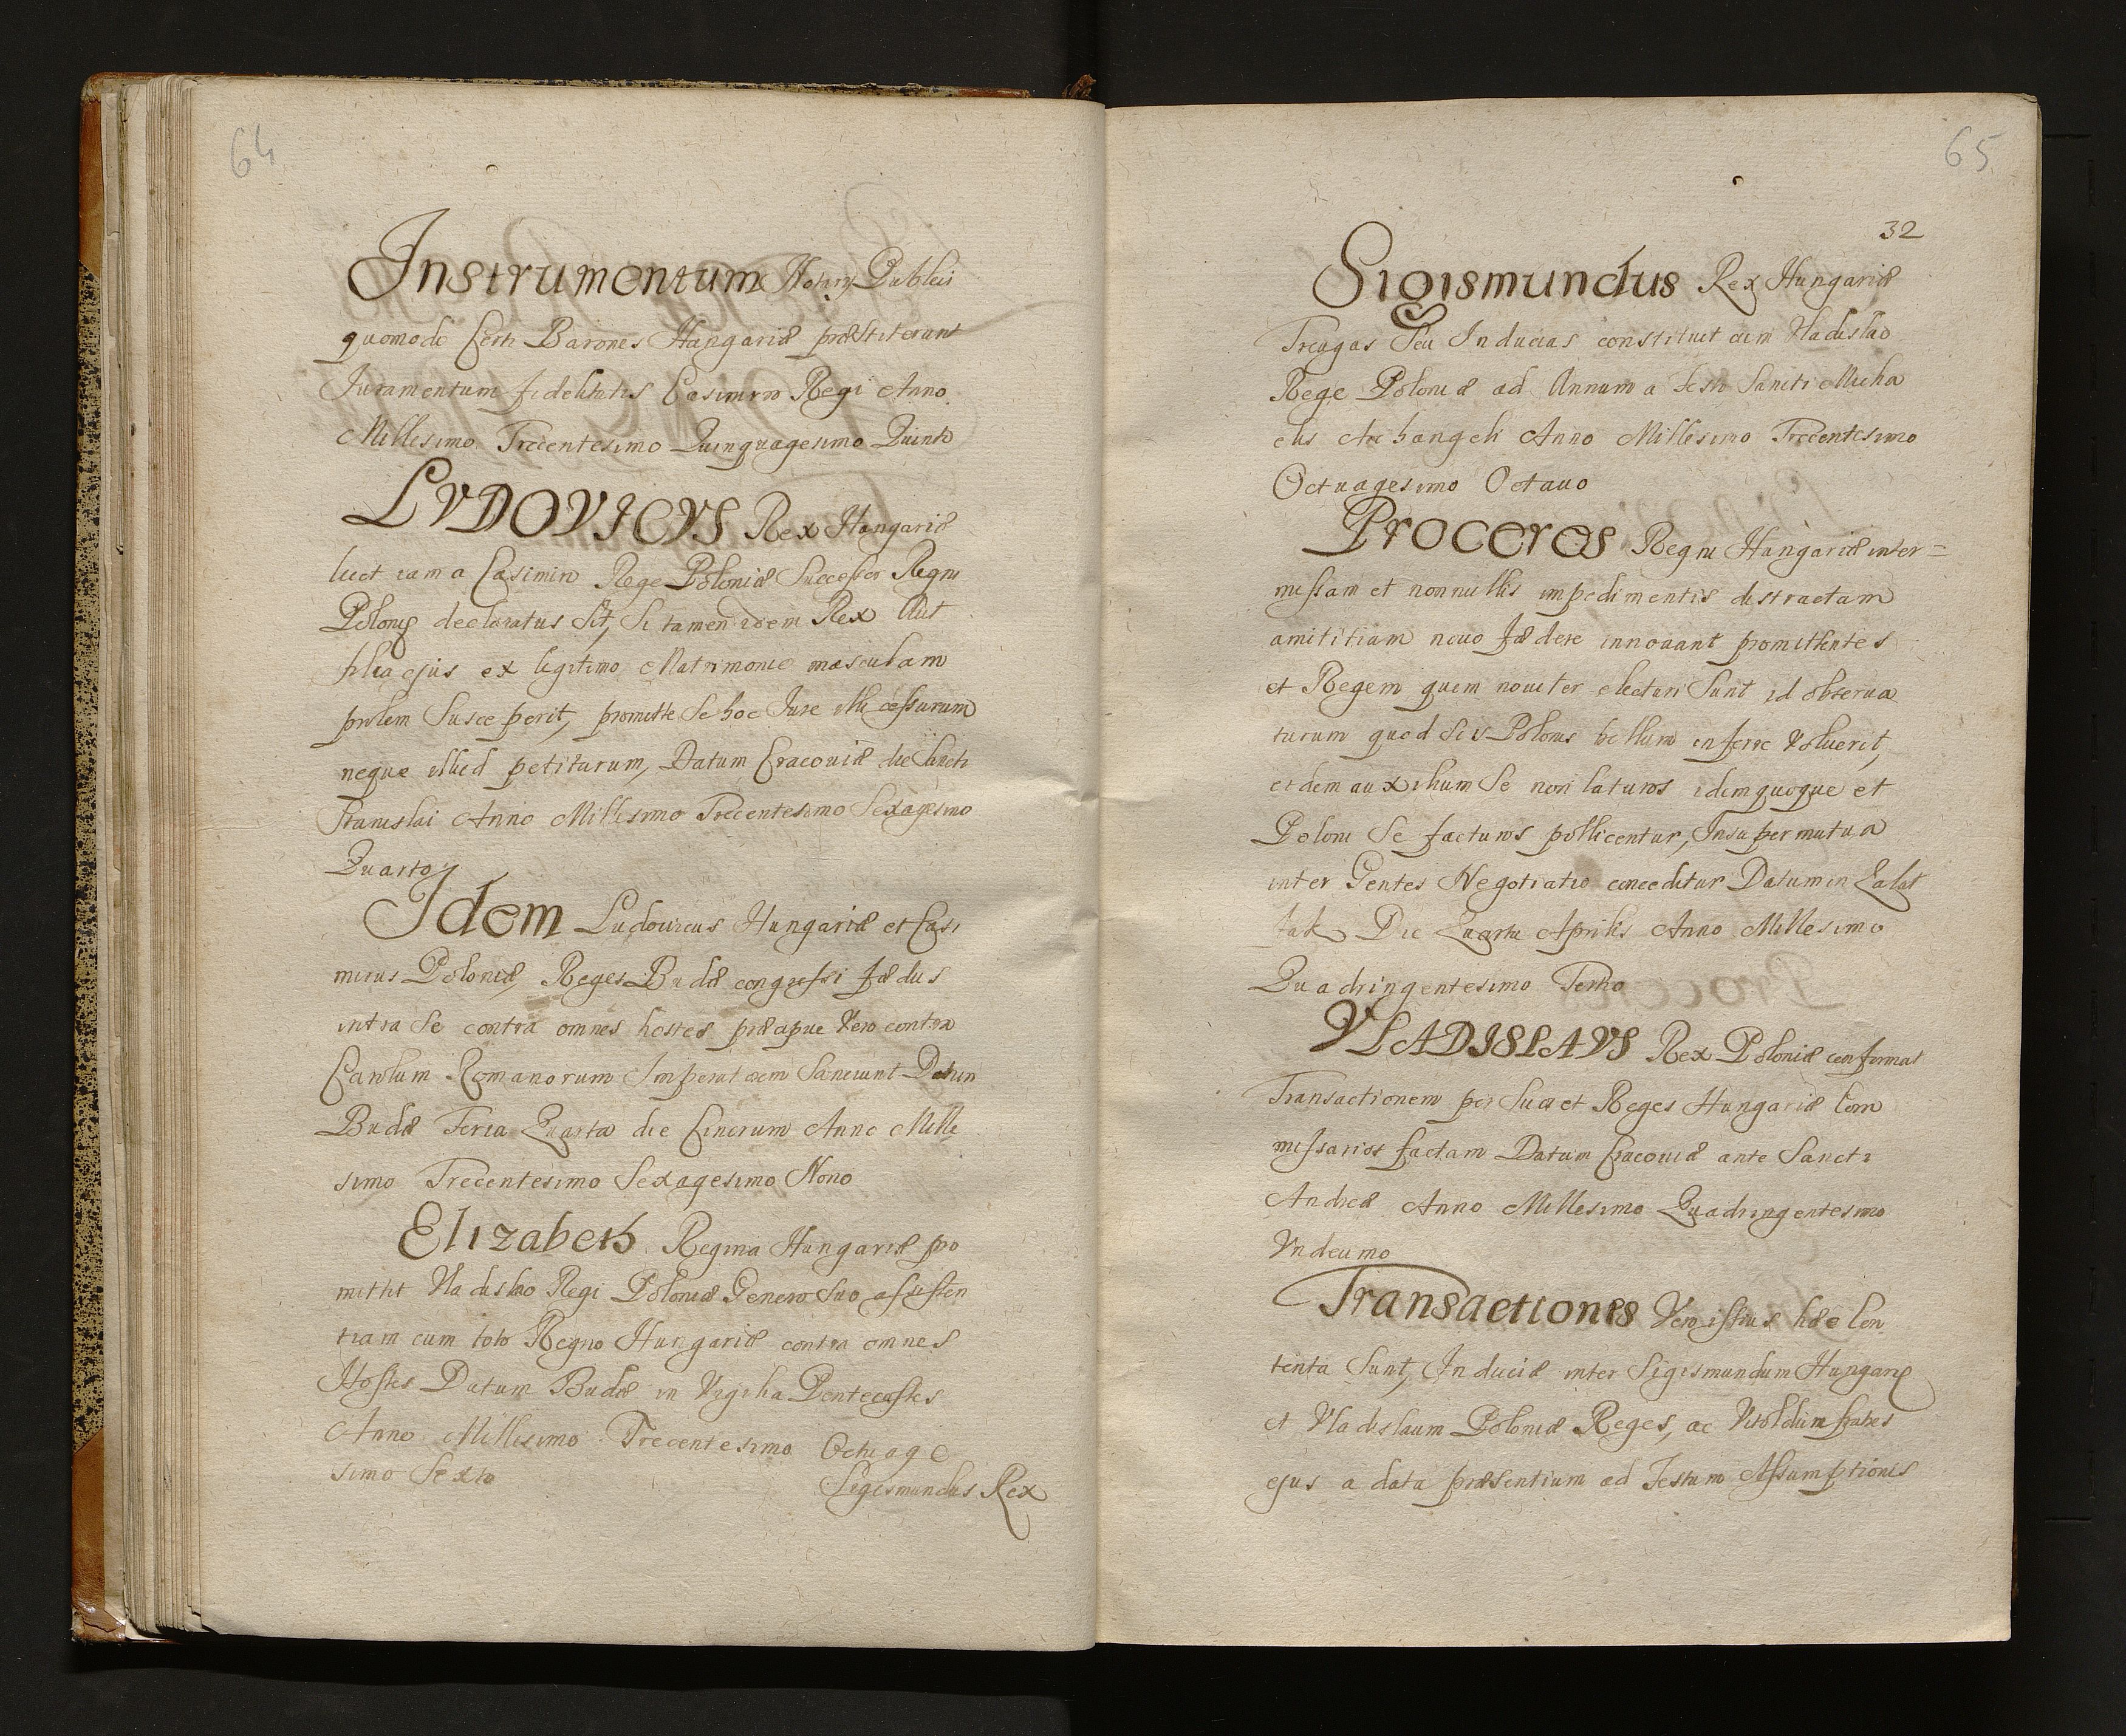 64
Instrumentum Notarij Publici
quomodo Certi Barones Hungariæ præstiterunt
Juramentum fidelitatis Casimiro Regi Anno
Millesimo Trecentesimo Quinquagesimo Quinto
LVDOVICVS Rex Hungariæ
licet iam a Casimiro Rege Poloniæ Successor Regni
Polonię declaratus sit, si tamen idem Rex Aut
filia ejus ex legitimo Matrimonio masculam
prolem Susceperit, promittit Se hoc Jure illi cessurum
neque illud petiturum, Datum Cracoviæ die Sancti
Stanislai Anno Millesimo Trecentesimo Sexagesimo
Quarto
Idem Ludovicus Hungariæ et Casi
mirus Poloniæ, Reges Budæ congressi fædus
intra Se contra omnes hostes præcipue Vero contra
Carolum Romanorum Imperatorem Sanciunt Datum
Budæ Feria Quarta die Cinerum Anno Mille
simo Trecentesimo Sexagesimo Nono
Elizabeth Regina Hungariæ pro
mittit Vladislao Regi Poloniæ Genero Suo assisten
tiam cum toto Regno Hungariæ contra omnes
Hostes Datum Budæ in Vigilia Pentecostes
Anno Millesimo Trecentesimo Octuage
simo Sexto
Sigismundus Rex
65
32
Sigismundus Rex Hungariæ
Treugas Seu Inducias constituit cum Vladislao
Rege Poloniæ ad Annum a festo Sancti Micha
elis Archangeli Anno Millesimo Trecentesimo
Octuagesimo Octauo
Proceres Regni Hungariæ inter=
missam et nonnullis impedimentis distractam
amititiam nouo fædere innouant promittentes
et Regem quem nouiter electuri Sunt id obserua
turum quod Si is Polonis bellum inferre Voluerit,
eidem auxilium Se non laturos idem quoque et
Poloni Se facturos pollicentur, Insuper mutua
inter Gentes Negotiatio conceditur Datum in Zalat
nak Die Quarta Aprilis Anno Millesimo
Quadringentesimo Tertio
VLADISLAVS Rex Poloniæ confirmat
Transactionem per Suos et Reges Hungariæ Com
missarios factam Datum Cracouiæ ante Sancti
Andreæ Anno Millesimo Quadringentesimo
Vndecimo
Transactionis Vero istius hæc Con
tenta Sunt, Induciæ inter Sigismundum Hungarię
et Vladislaum Poloniæ Reges, ac Vitoldum fratres
ejus a data præsentium ad Festum Assumptionis